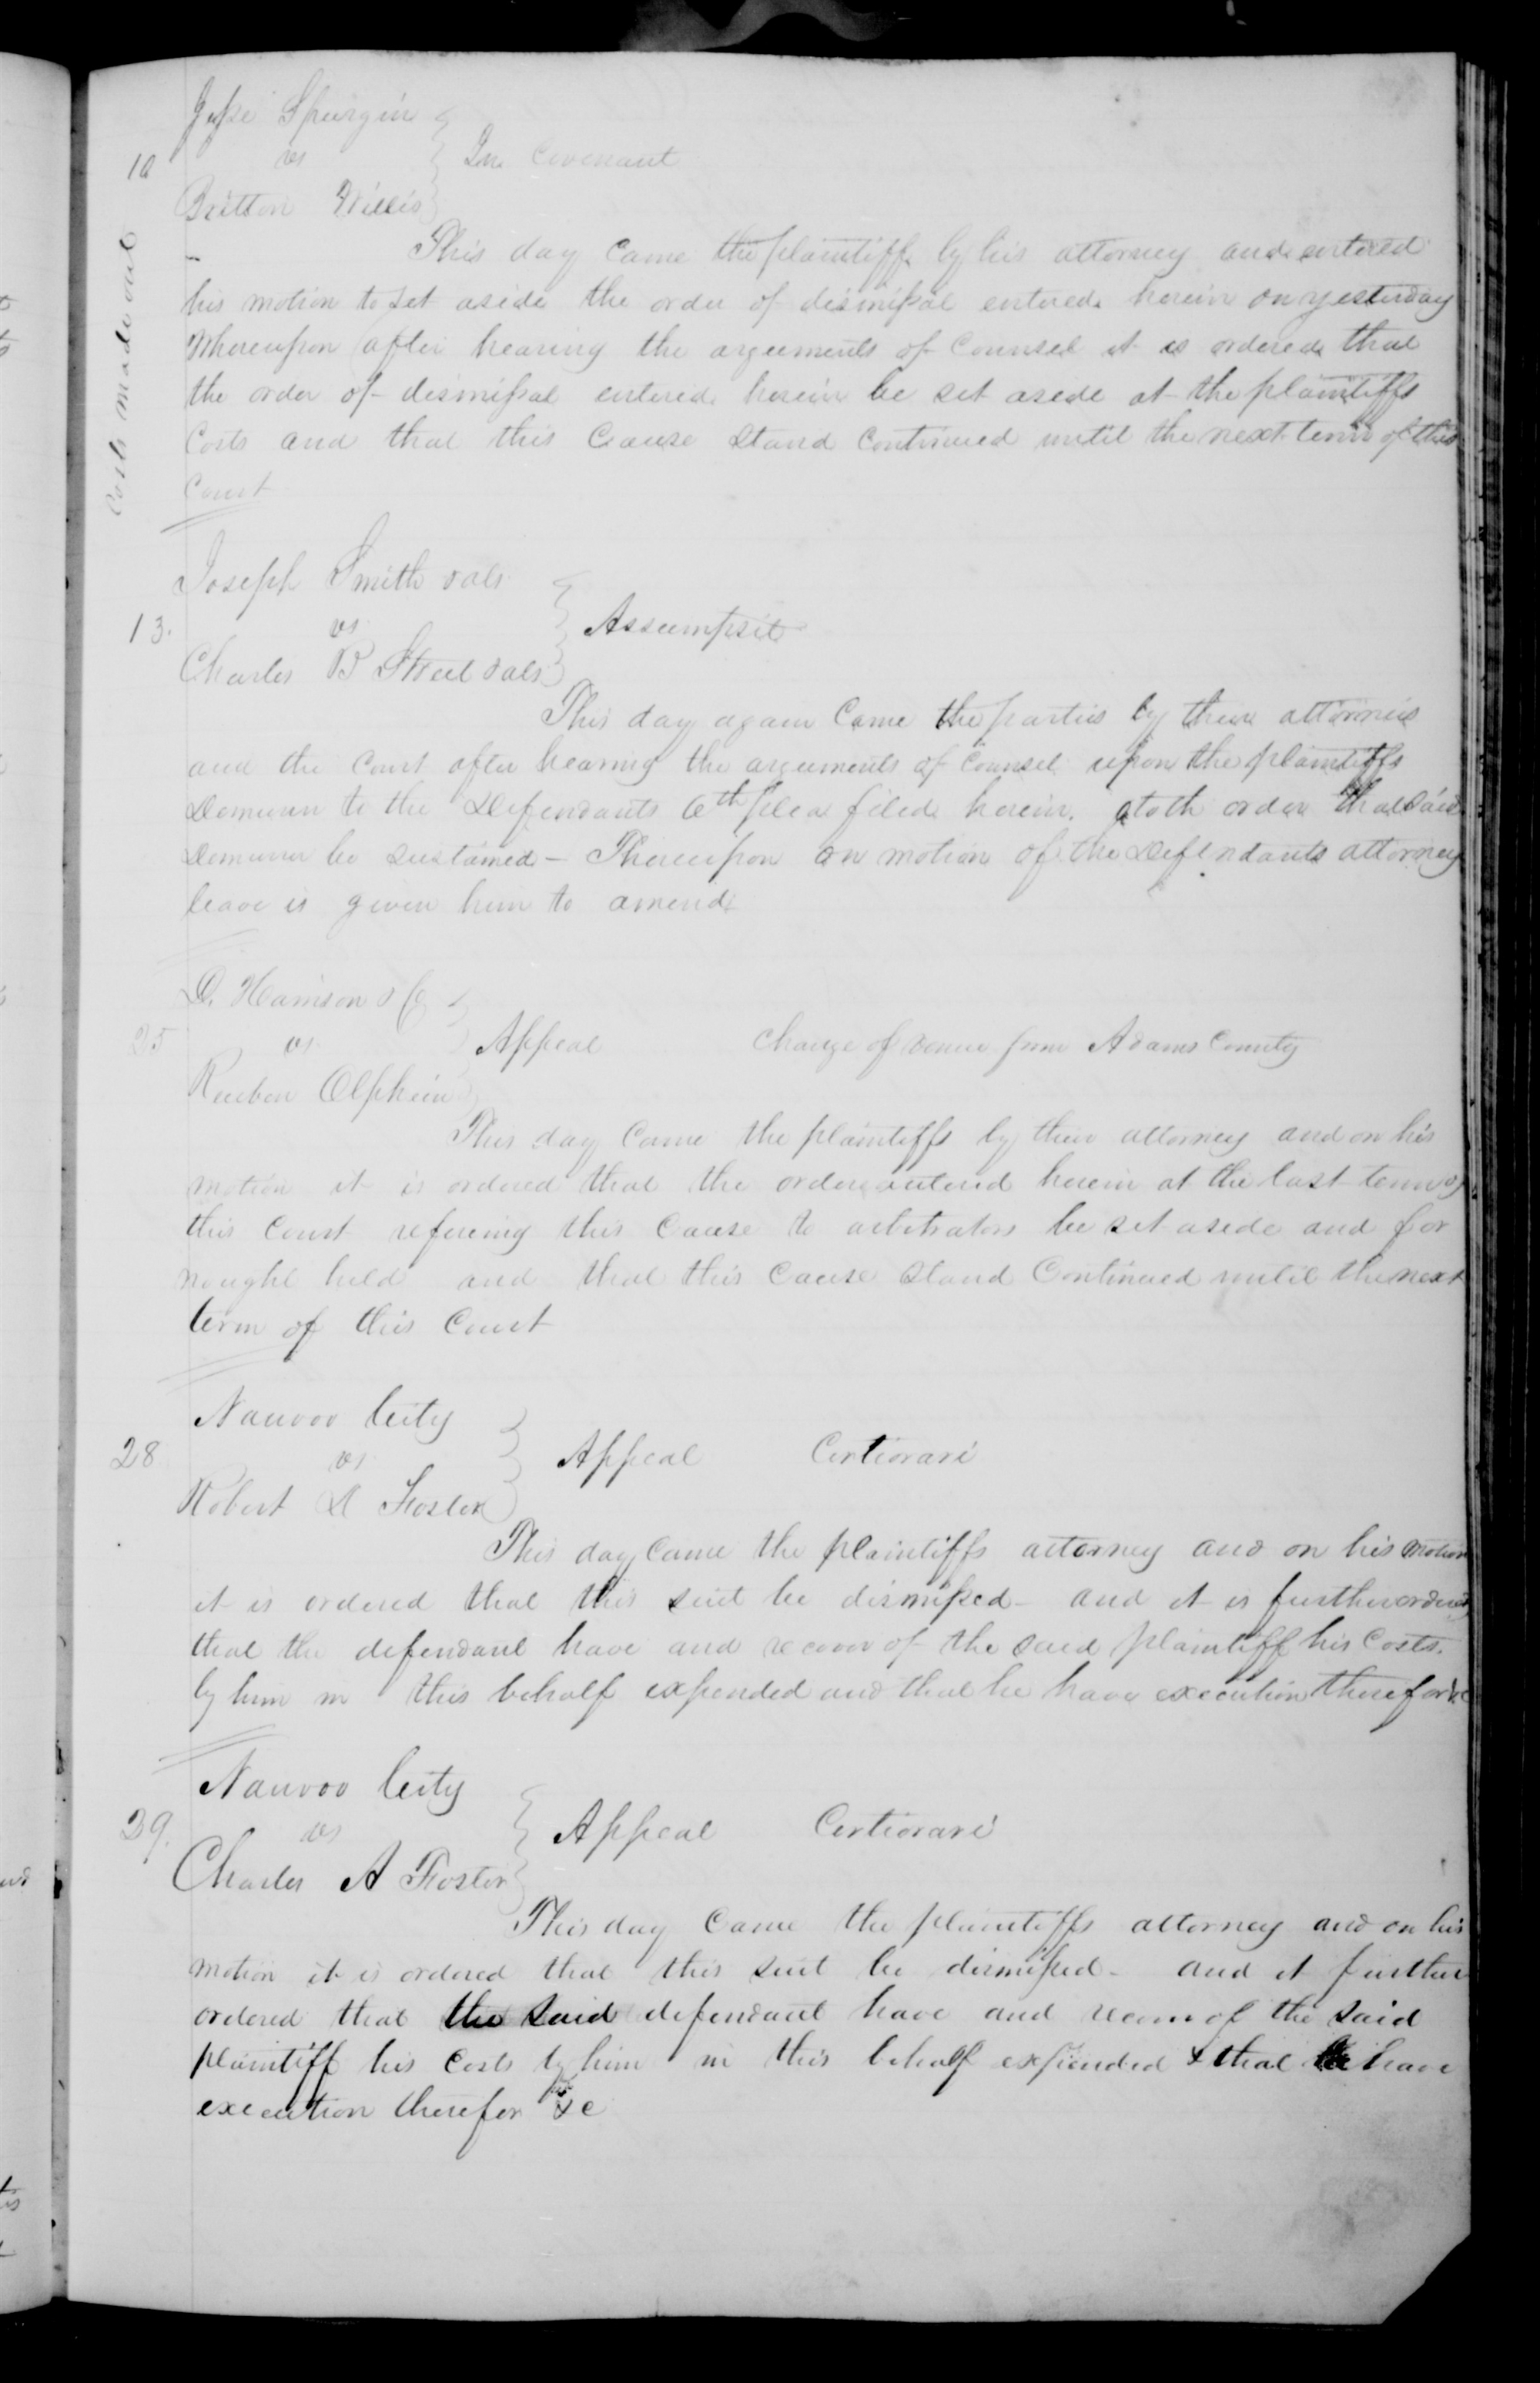 Jesse Spurgin
10 vs In Covenant
Britton Willis
Costs made out
This day came the plaintiff by his attorney and entered
his motion to set aside the order of dismissal entered herein on yesterday
Whereupon after hearing the arguements of Counsel it is ordered that
the order of dismissal entered herein be set aside at the plaintiffs
Costs and that this Cause stand Continued until the next term of this
Court
Joseph Smith & als
13. vs Assumpsit
Charles B Street & als
This day again Came the parties by their attornies
and the Court after hearing the arguements of Counsel upon the plaintiffs
Demurrer to the Defendants 6th plea filed herein. doth order that said
Demurrer be sustained – Thereupon on motion of the Defendants attorney
leave is given him to amend
D. Harrison & Co
25 vs Appeal Change of venue from Adams County
Reuben
This day Came the plaintiffs by their attorney and on his
motion it is ordered that the order entered herein at the last term of
this Court refering this Cause to arbitrators be set aside and for
nought held and that this Cause stand Continued until the next
term of this Court
Nauvoo City
28 vs Appeal Certiorari
Robert D Foster
This day Came the plaintiffs attorney and on his motion
it is ordered that this suit be dismissed – and it is further ordered
that the defendant have and recover of the said plaintiff his Costs.
by him in this behalf expended and that he have execution therefor &c
Nauvoo City
29. vs Appeal Certiorari
Charles A Foster
This day Came the plaintiffs attorney and on his
motion it is ordered that this suit be dismissed – and it further
ordered that the said defendant have and recover of the said
plaintiff his Costs by him in this behalf expended & that he have
execution therefor &c